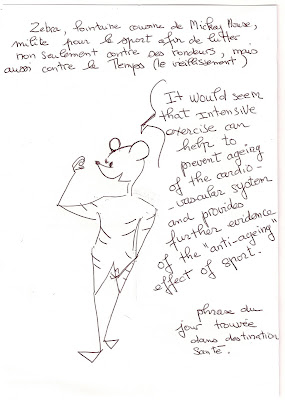 Zebra, lointaine cousine de Mickey Mouse,
milite pour le sport afin de lutter
non seulement contre ses rondeurs, mais
aussi contre le Temps (le vieillissement)
It would seem
that intensive
exercise can
help to
prevent ageing
of the cardio-
-vascular system
and provides
further evidence
of the "anti-ageing"
effect of sport.
phrase du
jour trouvée
dans destination
santé.